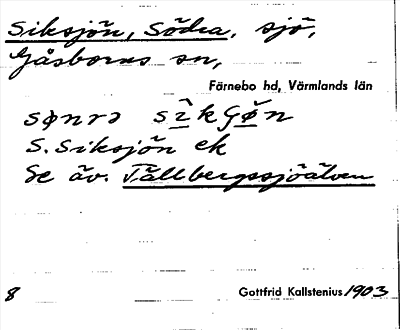 Siksjön, Södra, sjö,
Gåsborns sn,
Färnebo hd, Värmlands län
S. Siksjön ek
Se äv. Tällbergssjöälven
8
Gottfrid Kallstenius 1903